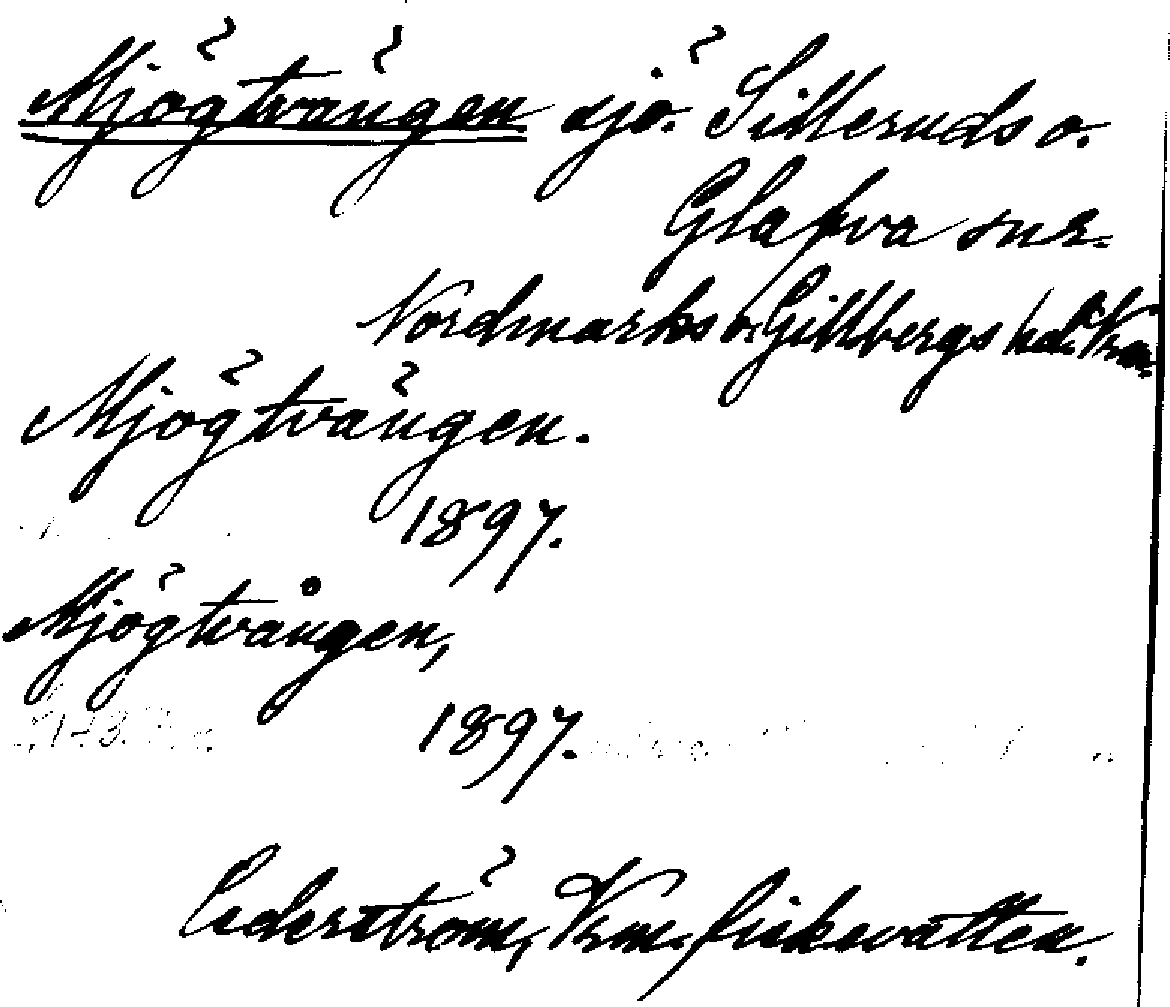 Mjögtvängen sjö. Silleruds o.
Glafva snr.
Nordmarks o. Gillbergs hdr. Vrm.
Mjögtvängen.
1897.
Mjögtvången,
1897.
Cederström, Vrm. fiskevatten.